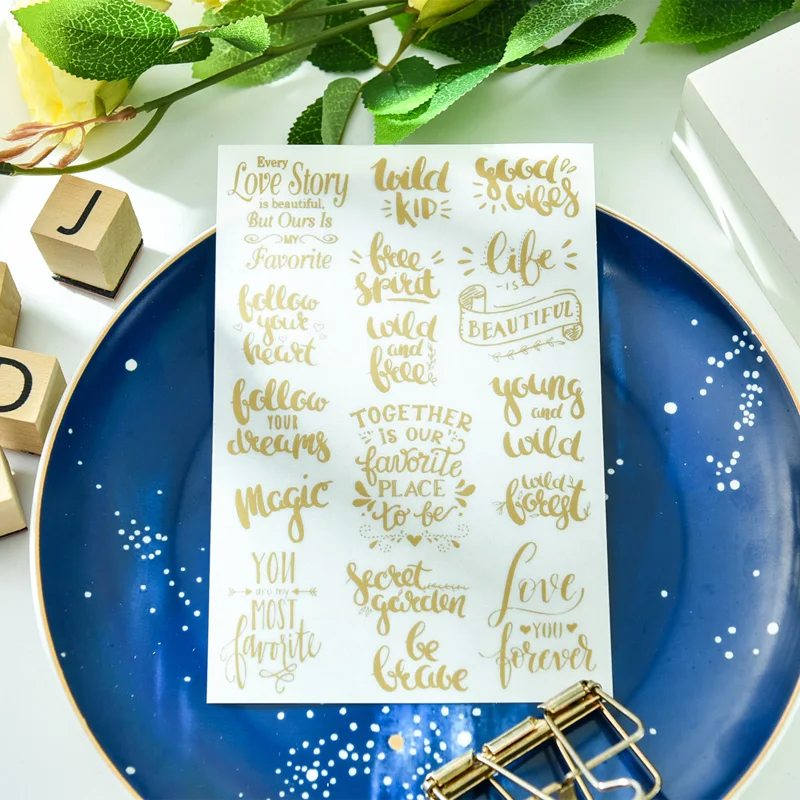 Every
Love Story
is beautiful,
But Ours Is
MY
Favorite
wild
KID
good
vibes
free
spirit
life
IS
BEAUTIFUL
follow
your
heart
wild
and
free
follow
YOUR
dreams
TOGETHER
is OUR
favorite
PLACE
to be
young
and
wild
magic
wild
forest
YOU
are my
MOST
favorite
secret
garden
be
brave
Love
YOU
forever
J
D